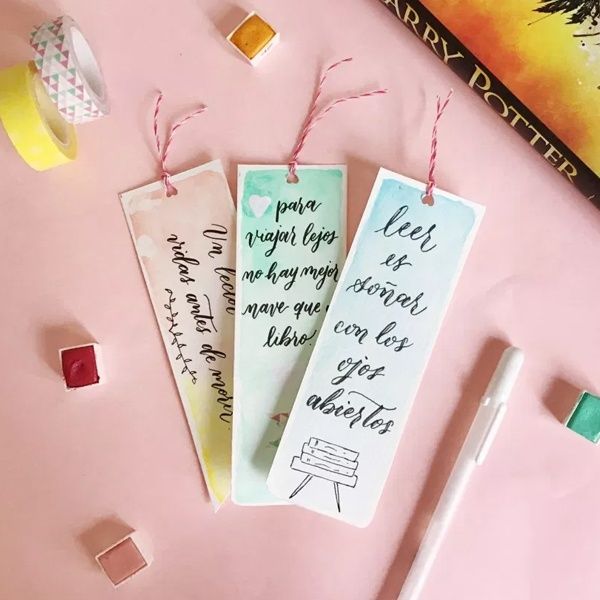 ARRY POTTER
Un lector
vidas antes de morir
para
viajar lejos
no hay mejor
nave que
libro.
leer
es
soñar
con los
ojos
abiertos